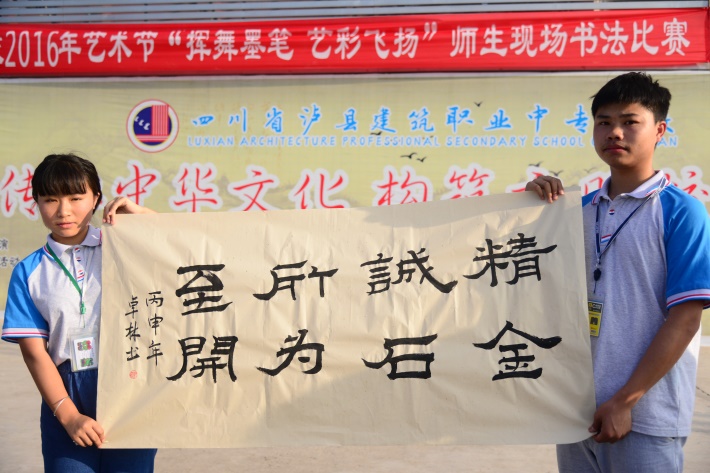 2016年艺术节“挥舞墨笔 艺彩飞扬”师生现场书法比赛
四川省泸县建筑职业中专
LUXIAN ARCHITECTURE PROFESSIONAL SECONDARY SCHOOL
传 中华文化 构筑
精誠所至
金石为開
丙申年
卓林书